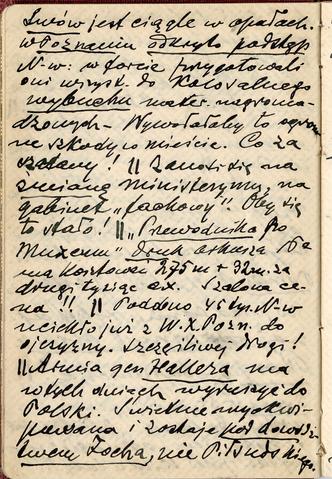 Lwów jest ciągle w opałach.
W Poznaniu odkryto podstęp
N-w: w forcie przygotowali
oni wszyst. do kolosalnego
wybuchu mater. nagroma-
dzonych – Wywołałaby to ogrom
ne szkody w mieście. Co za
szelmy! || Zanosi się na
zmianę ministeryum, na
gabinet „fachowy”. Oby się
to stało! || „Przewodnika po
Muzeum” druk arkusza
ma kosztować 275 m + 92 m. za
drugi tysiąc ex. Szalona ce-
na!! || Podobno 45 tys. N-w
uciekło już z W.X. Pozn. do
ojczyzny. Szczęśliwej drogi!
|| Armja gen Hallera ma
w tych dniach wyruszyć do
Polski. Świetnie wyekwi-
powana i zostaje pod dowódz-
twem Focha, nie Piłsudskiego.